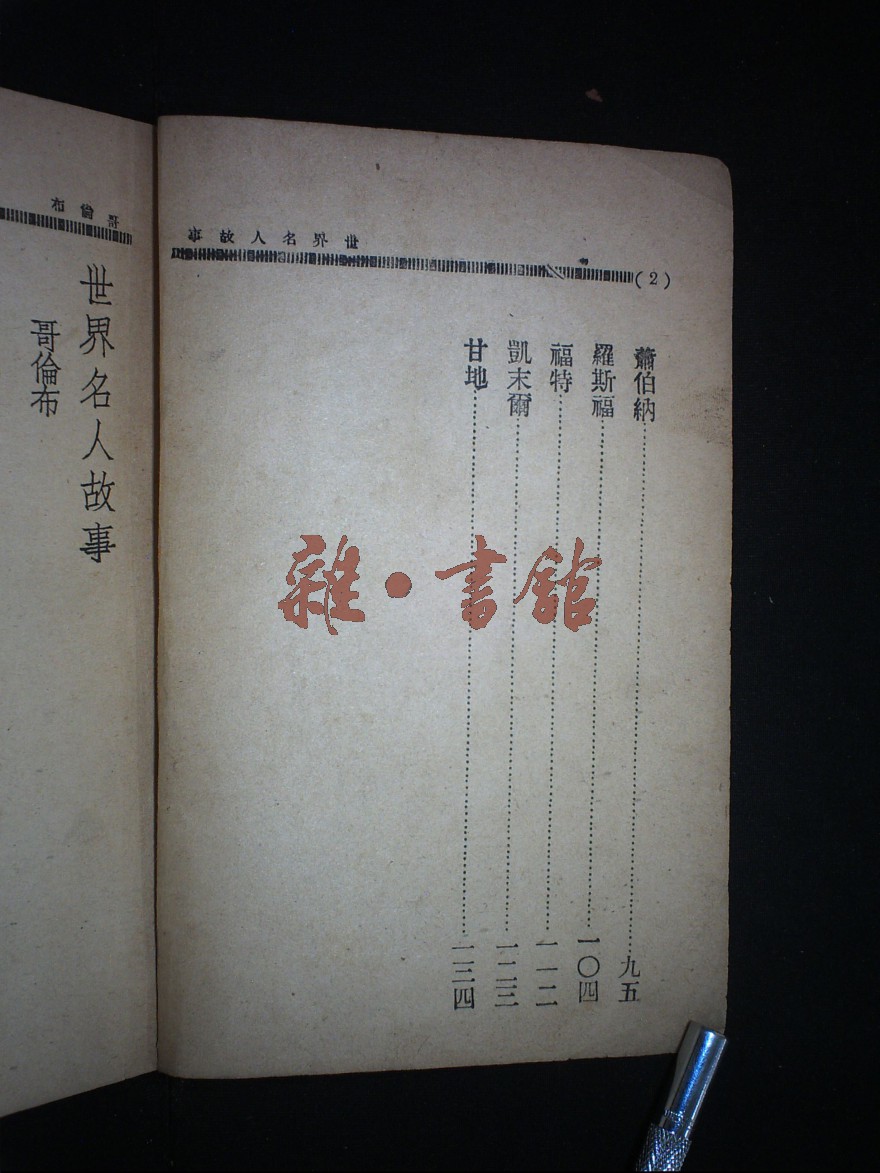 世界名人故事
(2)
蕭伯納……九五
羅斯福……一〇四
福特……一一二
凱末爾……一二三
甘地……一三四
哥倫布
世界名人故事
哥倫布
雜·書館